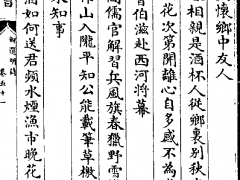 懷鄉中友人
相親是酒杯人從鄉裏別秋
花次第開離心自多感不為
曾伯滋赴西河將幕
儒官解習兵風旗春獵野雪
山入隴平知公能載筆草檄
知事
酒如何送君頻水煙漁市晚花
卷五十一